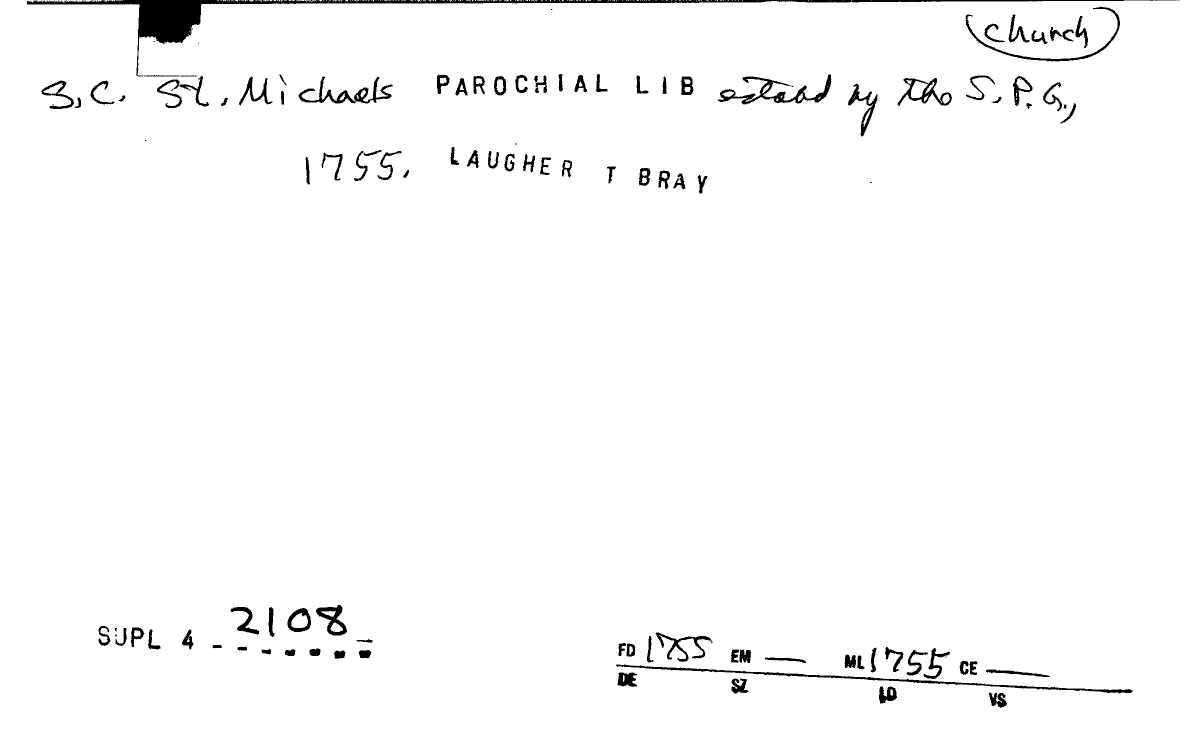 church
S.C. St. Michaels PAROCHIAL LIB estabd by the S.P.G.,
1755. LAUGHER T BRAY
SUPL 4 - 2108
FD 1755 EM — ML 1755 CE —
DE SZ LD VS